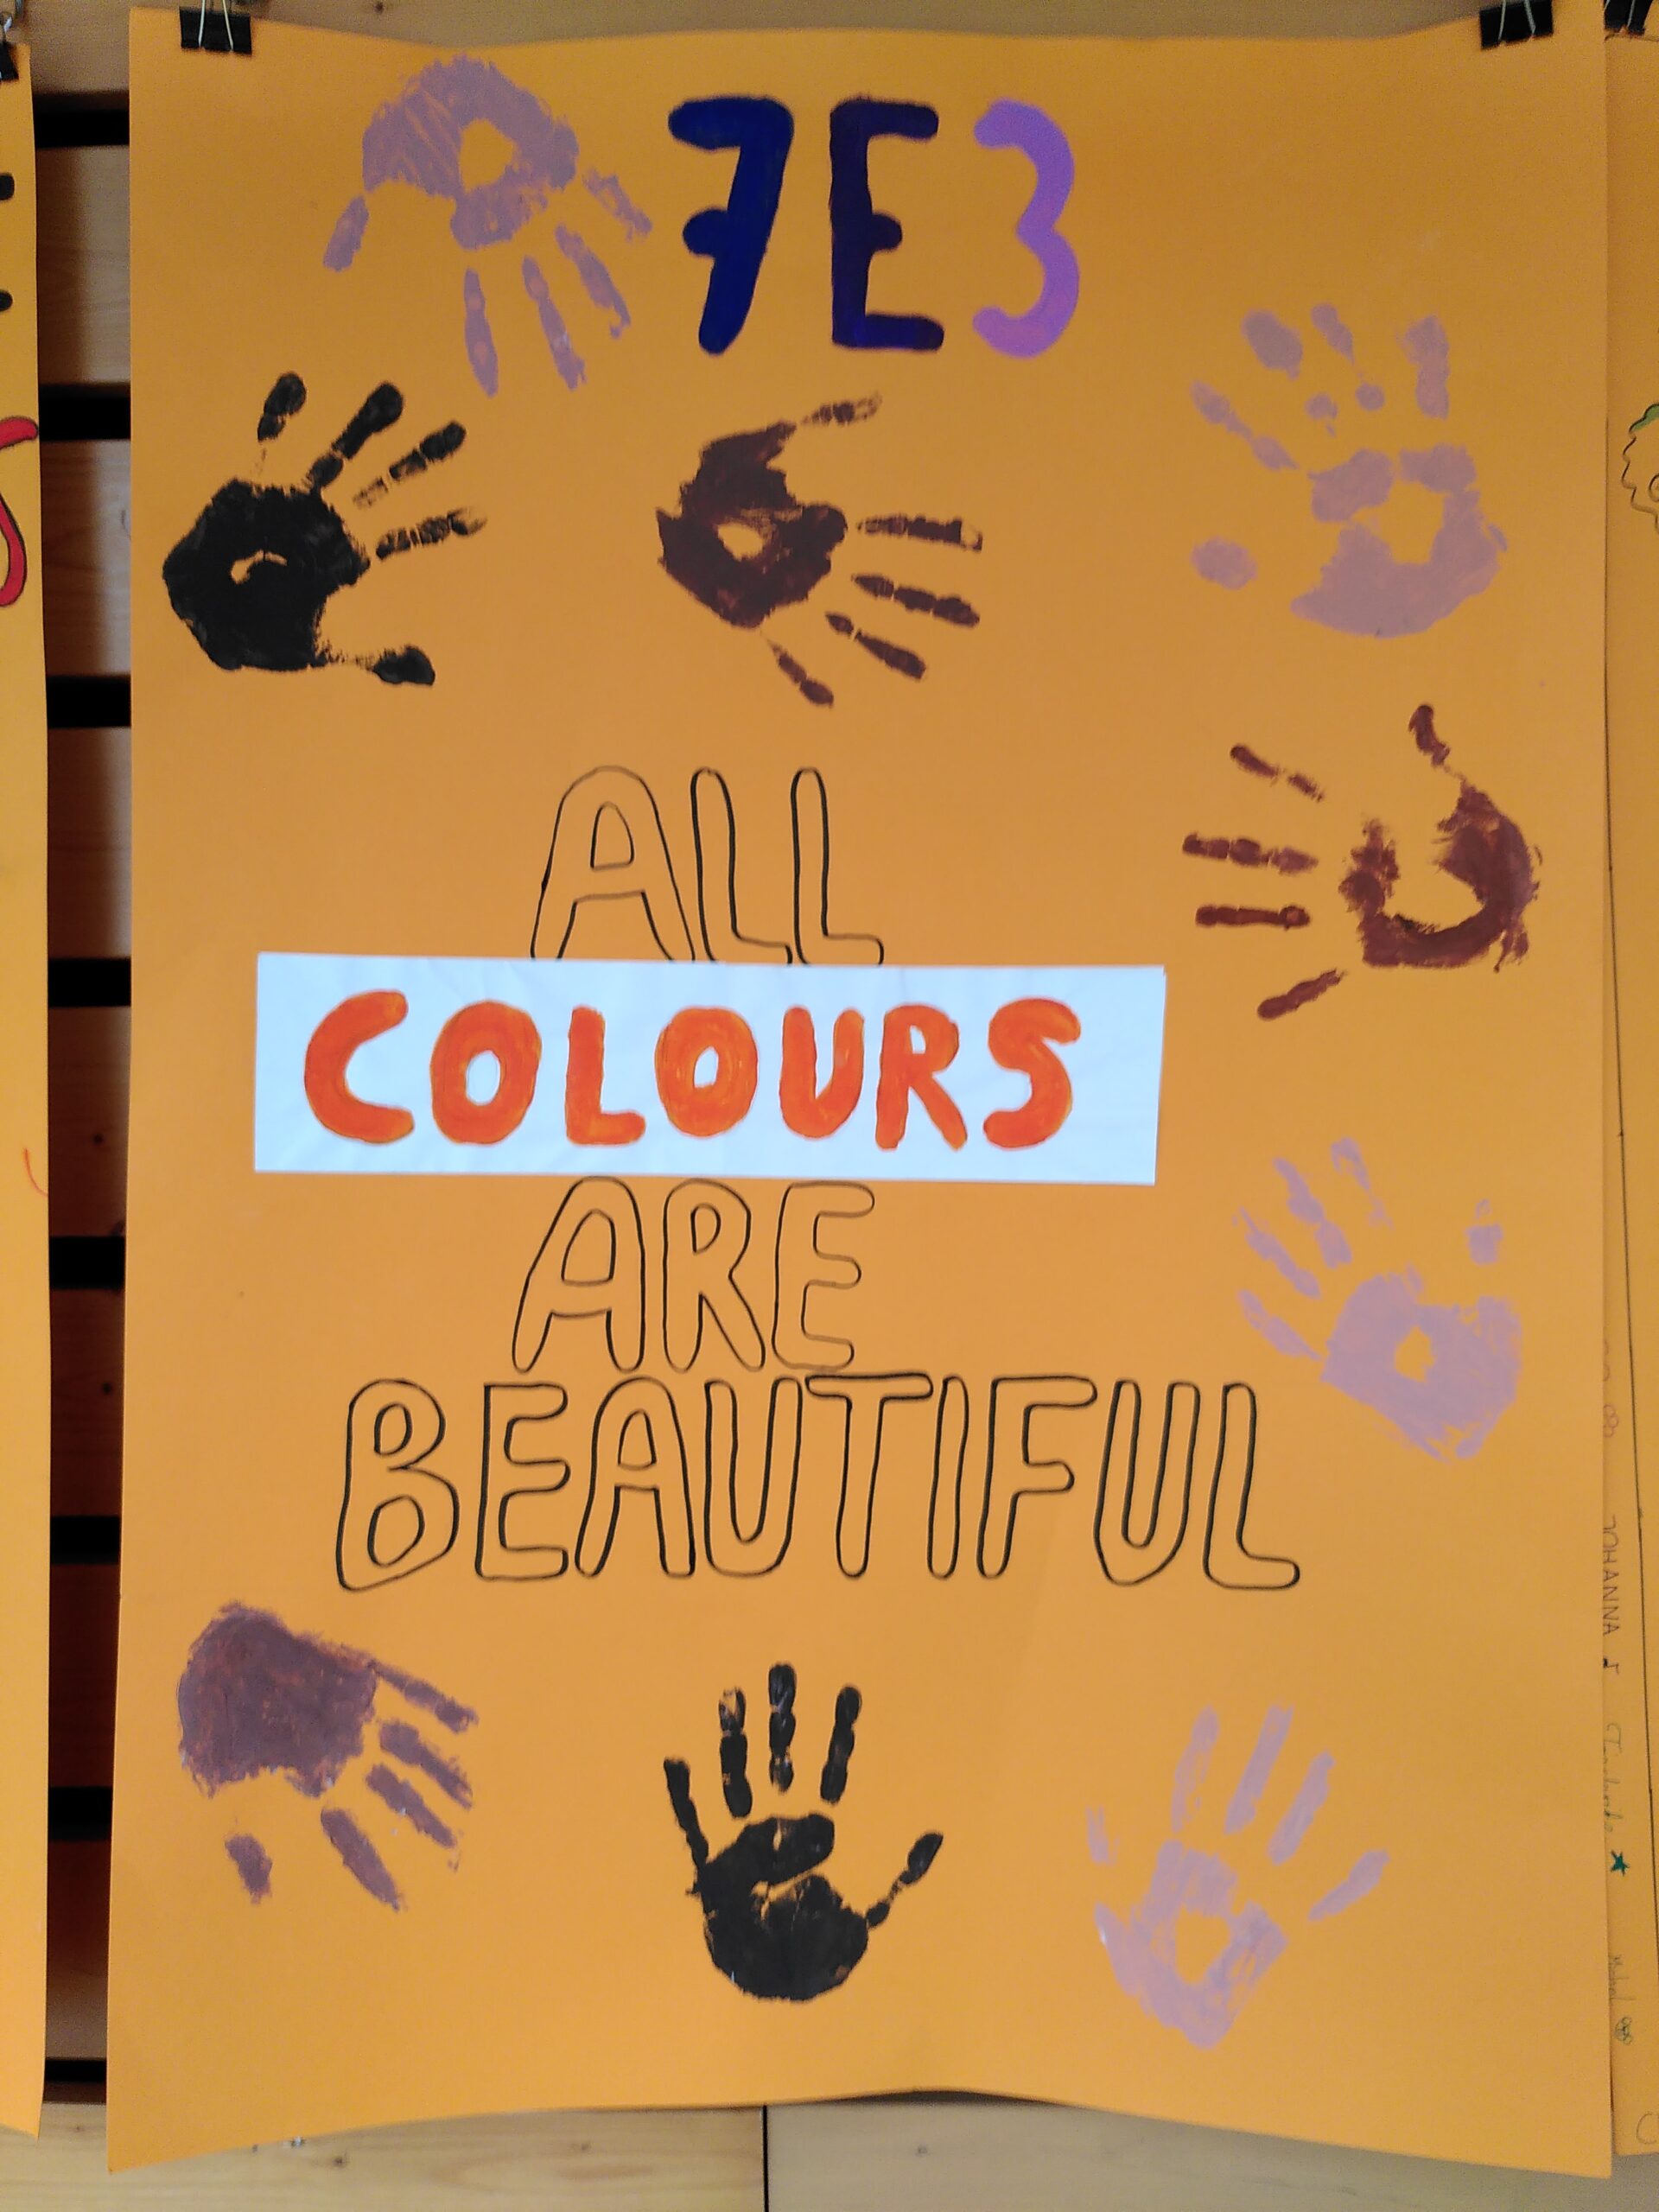 7E3
ALL
COLOURS
ARE
BEAUTIFUL
JOHANNA